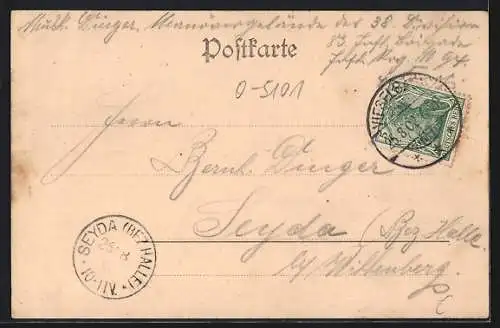 Musk. Dinger, Manövergelände der 38. Division
83. Inft. Brigade
Inft. Reg. N 94.
Postkarte
0-5101
Herrn
Bernh. Dinger
Seyda (Bez Halle)
b/ Wittenberg.
SEYDA (BEZ HALLE)
10-11V.